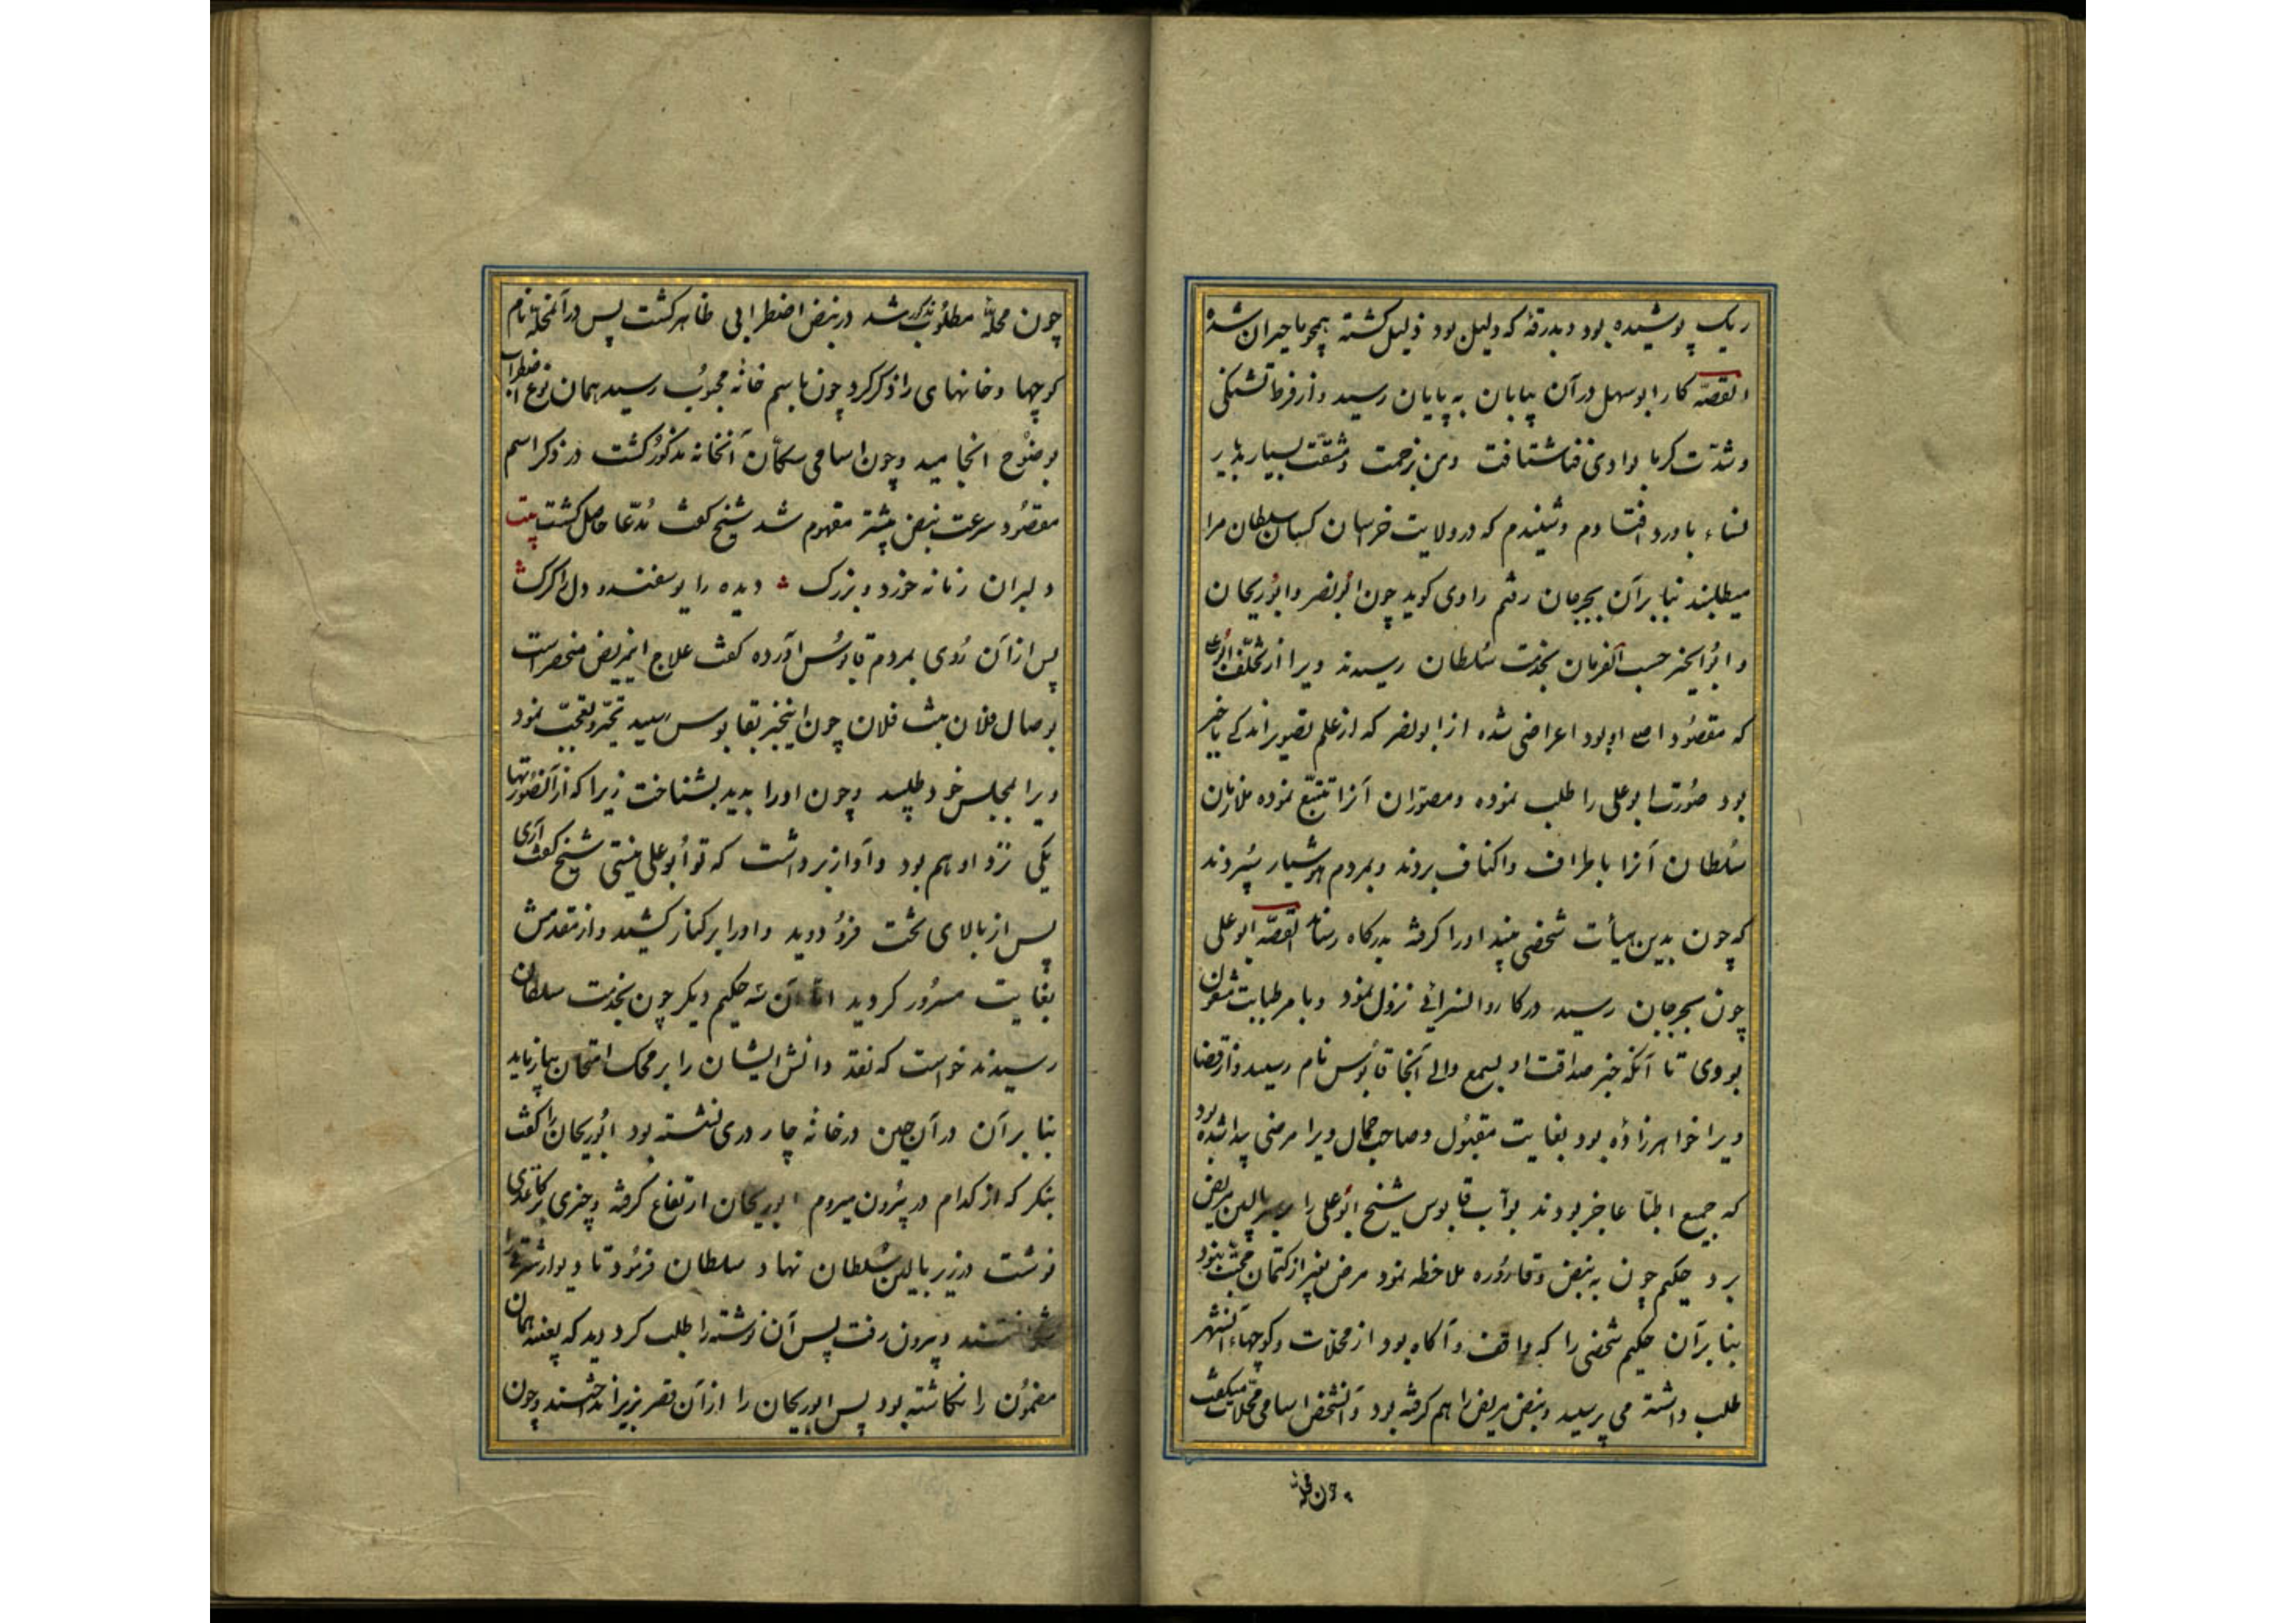 ریک پوشیده بود و بدرقهٔ که دلیل بود ذلیل کشته همچو ما حیران شده
القصّه کار ابوسهل در آن بیابان به پایان رسید و از فرط تشنکی
و شدّت کرما بوادی فنا شتافت و من بزحمت و مشقّت بسیار بدیار
نساء باورد افتادم و شنیدم که در ولایت خراسان کسان سلطان مرا
میطلبند بنا بر آن بجرجان رفتم راوی کوید چون ابونصر و ابوریحان
و ابوالخیر حسب الفرمان بخدمت سُلطان رسیدند ویرا از تخلّف ابوعلی
که مقصود اصلی او بود اعراضی شده از ابونصر که از علم تصویر اندکی با خبر
بود صُورت ابوعلی را طلب نموده و مصوّران آنرا تتبّع نموده ملازمان
سُلطان آنرا باطراف و اکناف بردند و بمردم هوشیار سپردند
که چون بدین هیأت شخصی بینید او را کرفته بدرکاه رسانند القصّه ابوعلی
چون بجرجان رسید در کاروانسرائی نزول نمود و بامر طبابت مشغول
بودی تا آنکه خبر صداقت او بسمع والی آنجا قابُوس نام رسید و از قضا
ویرا خواهرزاده بود بغایت مقبُول و صاحب جمال ویرا مرضی پیدا شده بود
که جمیع اطبّا عاجز بودند نوّاب قابوس شیخ ابوعلی را بر سر بالین مریض
برد حکیم چون به نبض و قارُوره ملاحظه نمود مرض بغیر از کتمان محبّت نبود
بنا بر آن حکیم شخصی را که واقف و آکاه بود از محلّات و کوچهاء آنشهر
طلب داشته می پرسید و نبض مریض را هم کرفته بود و آنشخص اسامی محلّات میکفت
چون محلهٔ
چون محلهٔ مطلُوب مذکور شد در نبض اضطرابی ظاهر کشت پس در آنمحلّه نام
کوچها و خانهای را ذکر کرد چون باسم خانهٔ محبُوب رسید همان نوع اضطراب
بوضُوح انجامید و چون اسامی سکّان آنخانه مذکور کشت در ذکر اسم
مقصُود سرعت نبض بیشتر مفهوم شد شیخ کفت مُدّعا حاصل کشت بیت
دلبران زمانه خورد و بزرک دیده را یوسفند و دل را کرک
پس از آن رُوی بمردم قابُوس آورده کفت علاج اینمریض منحصر است
بوصال فلان بنت فلان چون اینخبر بقابوس رسید تحیّر و تعجّب نمود
ویرا بمجلس خود طلبید و چون اورا بدید بشناخت زیرا که از آنصُورتها
یکی نزد او هم بود و آواز برداشت که تو ابوعلی نیستی شیخ کفت آری
پس از بالای تخت فرُو دوید و اورا بر کنار کشید و از مقدمش
بغایت مسرُور کردید امّا آن سه حکیم دیکر چون بخدمت سلطان
رسیدند خواست که نقد دانش ایشان را بر محک امتحان بیازماید
بنا بر آن در آن حین در خانهٔ چار دری نشسته بود ابُوریحان را کفت
بنکر که از کدام در بیرُون میروم ابوریحان ارتفاع کرفته و چیزی بر کاغذی
نوشت در زیر بالین سُلطان نهاد سلطان فرمُود تا دیوار شرقی را
شکافتند و بیرون رفت پس آن نوشته را طلب کرد دید که بعینه همان
مضمُون را نکاشته بود پس ابوریحان را از آن قصر بزیر انداختند و چون